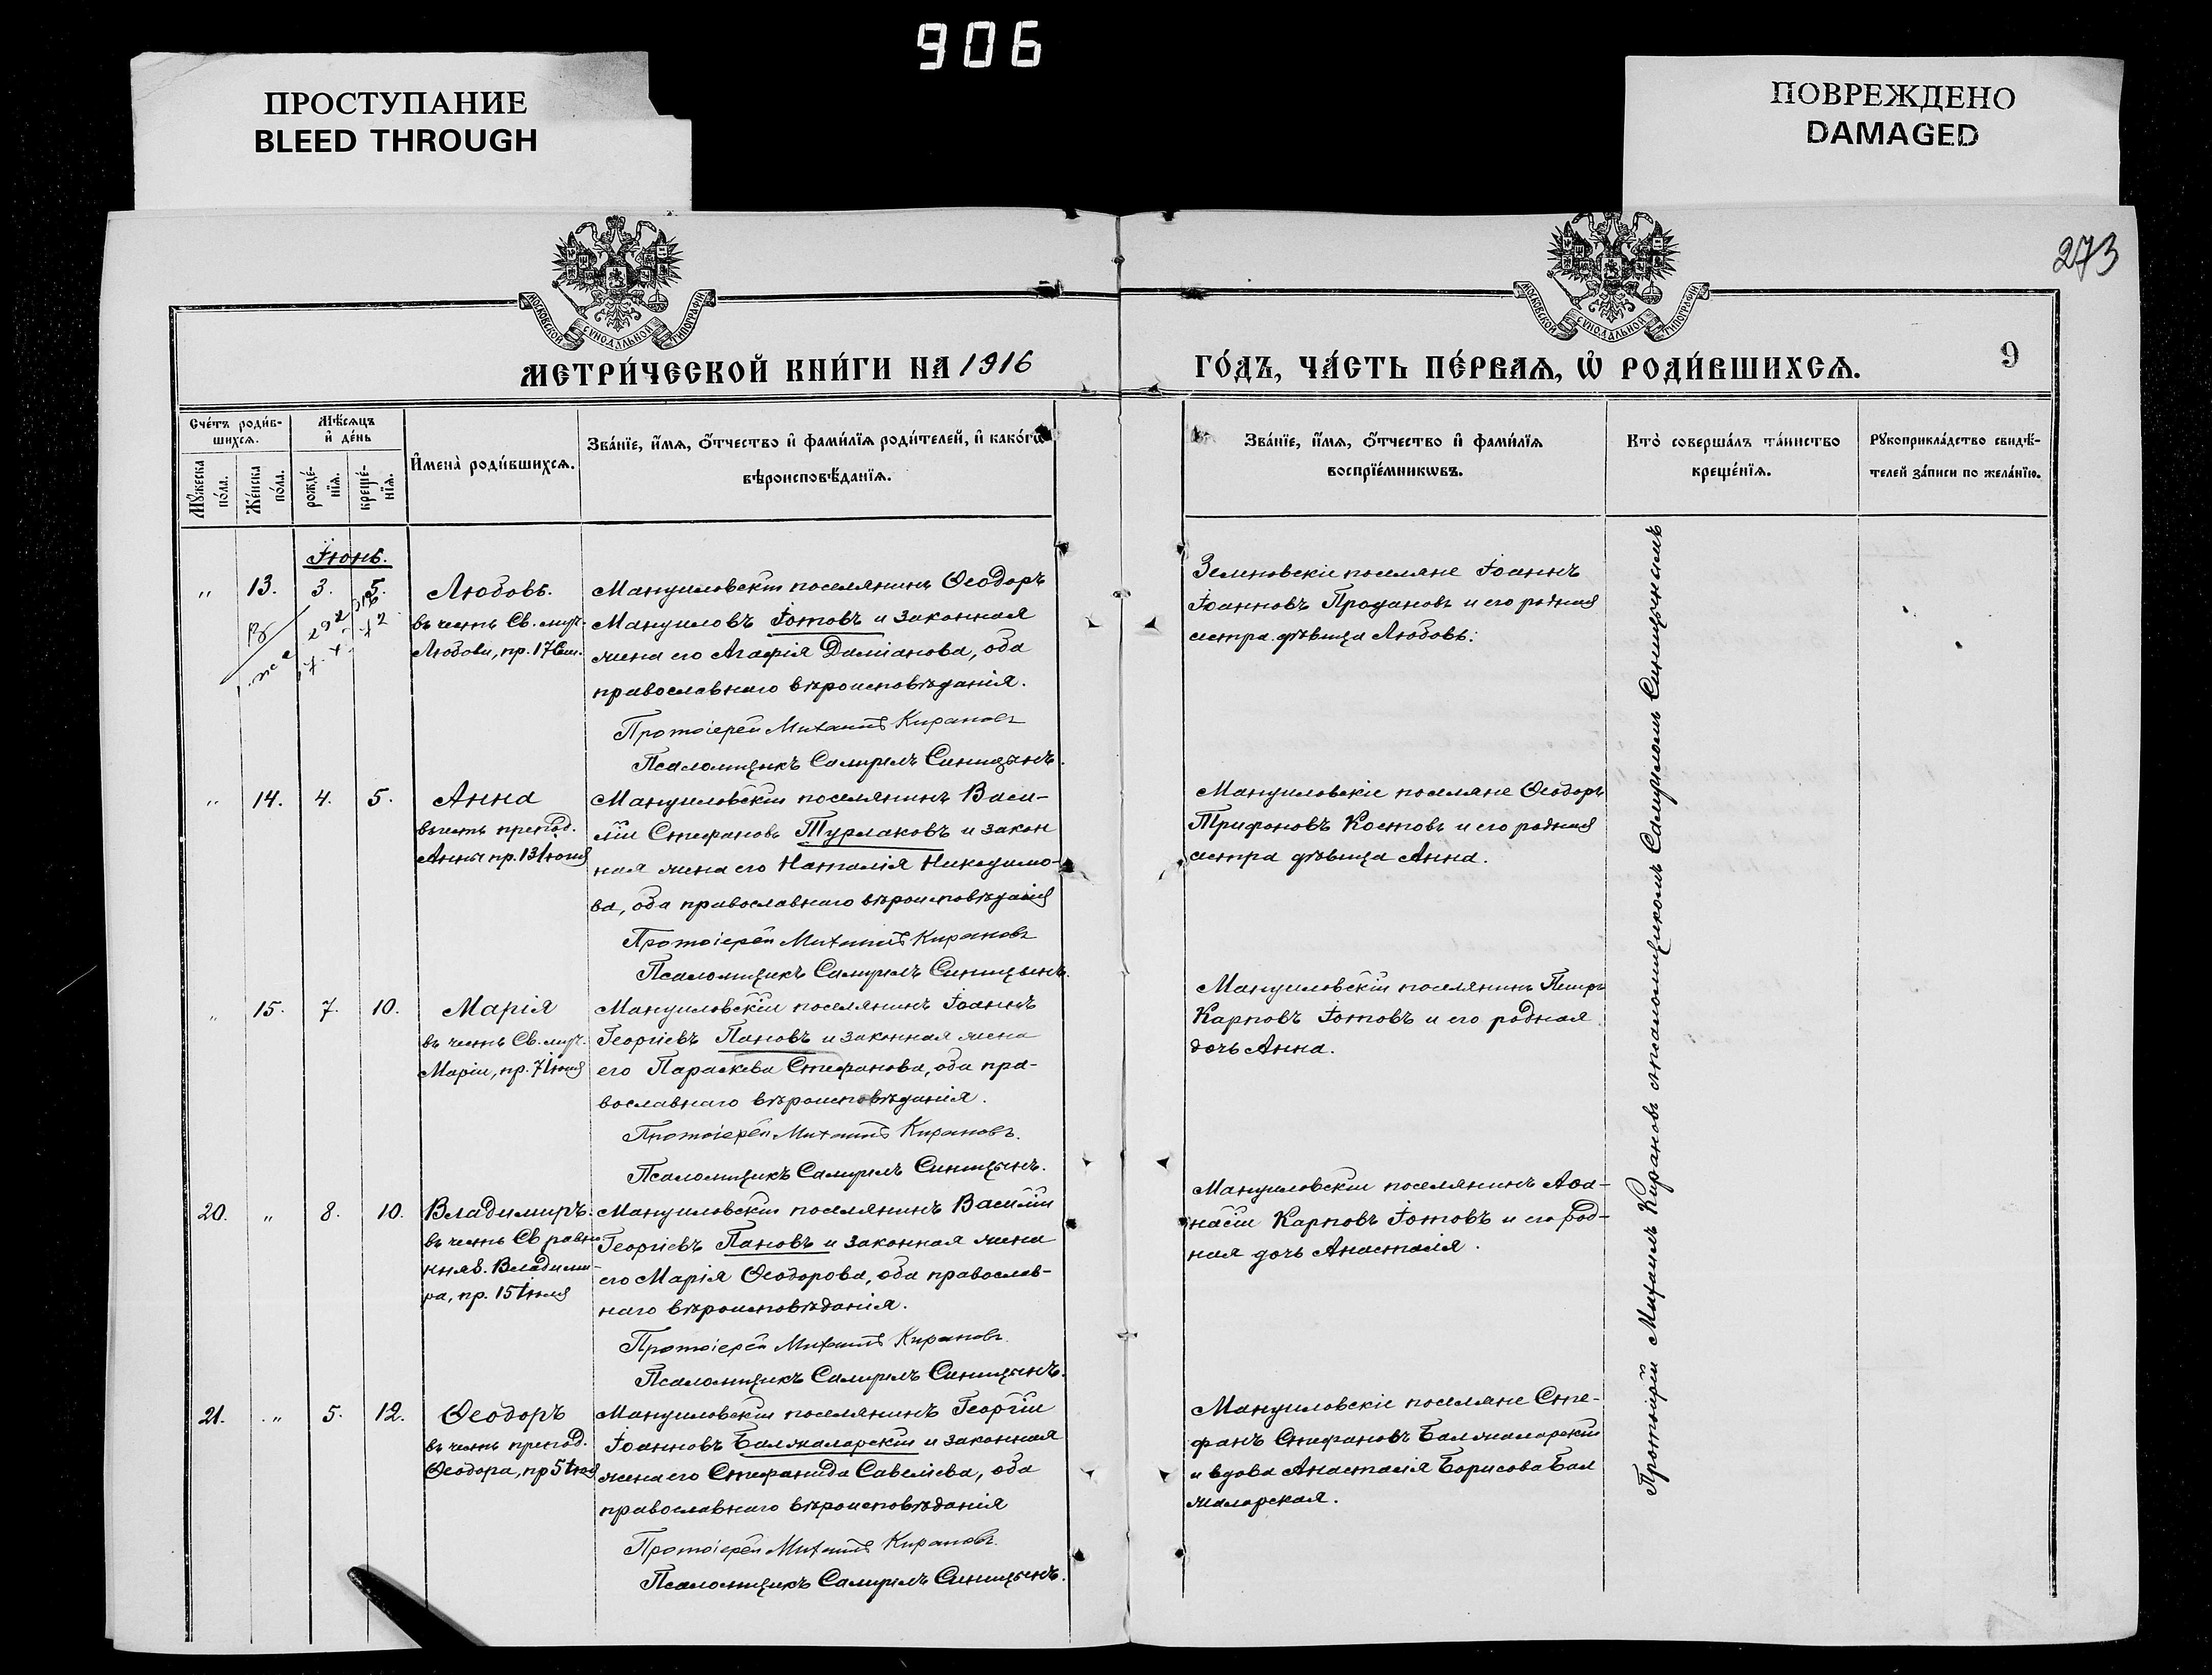 906
ПРОСТУПАНИЕ
BLEED THROUGH
ПОВРЕЖДЕНО
DAMAGED
273
МОСКОВСКОЙ СѴНОДАЛЬНОЙ ТИПОГРАФІИ
МОСКОВСКОЙ СѴНОДАЛЬНОЙ ТИПОГРАФІИ
МЕТРИ́ЧЕСКОЙ КНИ́ГИ НА 1916
ГО́ДЪ, ЧА́СТЬ ПЕ́РВАѦ, Ѡ҆ РОДИ́ВШИХСѦ.
9
Сче́тъ роди́в-
шихсѧ.
Мꙋ́жеска по́ла.
Же́нска по́ла.
Мѣ́сѧцъ
и҆ де́нь
рожде́-
нїѧ.
креще́-
нїѧ.
И҆мена̀ роди́вшихсѧ.
Зва́нїе, и҆́мѧ, ѻ҆́тчество и҆ фами́лїѧ роди́телей, и҆ како́гѡ
вѣроисповѣ́данїѧ.
Зва́нїе, и҆́мѧ, ѻ҆́тчество и҆ фами́лїѧ
воспрїе́мникѡвъ.
Кто̀ соверша́лъ та́инство
креще́нїѧ.
Рꙋкоприкла́дство свидѣ́-
телей за́писи по жела́нїю.
Іюнь.
„ 13. 3. 5.
Любовь.
въ честь Св. муч.
Любови, пр. 17 Сен.
Мануиловскій поселянинъ Ѳеодоръ
Мануиловъ Іотовъ и законная
жена его Агафія Даміанова, оба
православнаго вѣроисповѣданія.
Протоіерей Михаилъ Кирановъ
Псаломщикъ Самуилъ Синицынъ.
Зеленовскіе поселяне Іоаннъ
Іоанновъ Продановъ и его родная
сестра дѣвица Любовь.
„ 14. 4. 5.
Анна
въ честь препод.
Анны пр. 13 Іюня
Мануиловскій поселянинъ Васи-
лій Стефановъ Турлаковъ и закон
ная жена его Наталія Никодимо-
ва, оба православнаго вѣроисповѣданія
Протоіерей Михаилъ Кирановъ
Псаломщикъ Самуилъ Синицынъ.
Мануиловскіе поселяне Ѳеодоръ
Трифоновъ Костовъ и его родная
сестра дѣвица Анна.
„ 15. 7. 10.
Марія
въ честь Св. муч.
Маріи, пр. 7 Іюня
Мануиловскій поселянинъ Іоаннъ
Георгіевъ Пановъ и законная жена
его Параскева Стефанова, оба пра-
вославнаго вѣроисповѣданія.
Протоіерей Михаилъ Кирановъ.
Псаломщикъ Самуилъ Синицынъ.
Мануиловскій поселянинъ Петръ
Карповъ Іотовъ и его родная
дочь Анна.
20. „ 8. 10.
Владимиръ.
въ честь Св равно
княз. Владими-
ра, пр. 15 Іюля
Мануиловскій поселянинъ Василій
Георгіевъ Пановъ и законная жена
его Марія Ѳеодорова, оба православ-
наго вѣроисповѣданія.
Протоіерей Михаилъ Кирановъ.
Псаломщикъ Самуилъ Синицынъ.
Мануиловскій поселянинъ Аѳа-
насій Карповъ Іотовъ и его род-
ная дочь Анастасія.
21. „ 5. 12.
Ѳеодоръ
въ честь препод.
Ѳеодора, пр 5 Іюн
Мануиловскій поселянинъ Георгій
Іоанновъ Балжаларскій и законная
жена его Стефанида Савеліева, оба
православнаго вѣроисповѣданія
Протоіерей Михаилъ Кирановъ.
Псаломщикъ Самуилъ Синицынъ.
Мануиловскіе поселяне Сте-
фанъ Стефановъ Балжаларскій
и вдова Анастасія Борисова Бал
жаларская.
Протоіерей Михаилъ Кирановъ съ псаломщикомъ Самуиломъ Синицынымъ